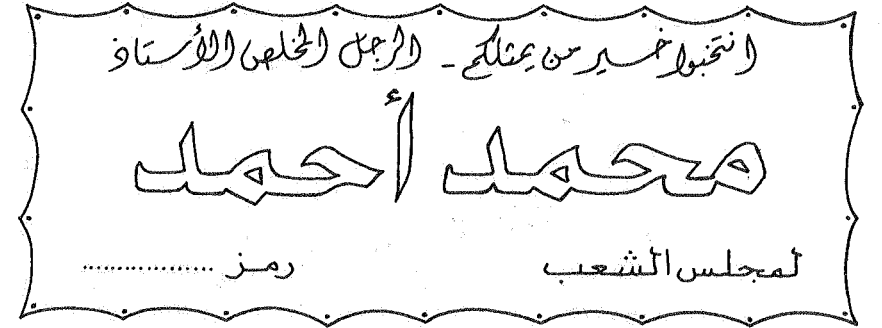 انتخبوا خير من يمثلكم - الرجل المخلص الأستاذ
محمد أحمد
لمجلس الشعب رمز ..................